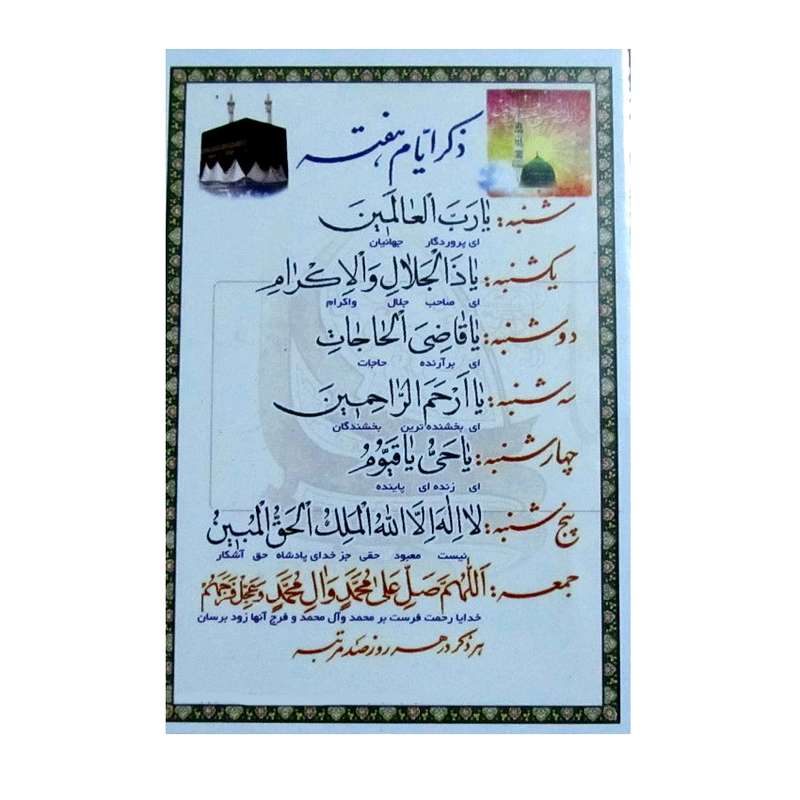 ذکر ایّام هفته
شنبه: یٰا رَبَّ الْعٰالَمینَ
ای پروردگار جهانیان
یکشنبه: یٰا ذَالْجَلٰالِ وَالْاِکْرٰامِ
ای صاحب جلال واکرام
دوشنبه: یٰا قٰاضِیَ الْحٰاجٰاتِ
ای برآرنده حاجات
سه شنبه: یٰا اَرْحَمَ الرّٰاحِمینَ
ای بخشنده ترین بخشندگان
چهارشنبه: یٰا حَیُّ یٰا قَیُّومُ
ای زنده ای پاینده
پنج شنبه: لٰا اِلٰهَ اِلَّا اللّٰهُ الْمَلِکُ الْحَقُّ الْمُبینُ
نیست معبود حقی جز خدای پادشاه حق آشکار
جمعه: اَللّٰهُمَّ صَلِّ عَلیٰ مُحَمَّدٍ وَ اٰلِ مُحَمَّدٍ وَ عَجِّلْ فَرَجَهُمْ
خدایا رحمت فرست بر محمد وآل محمد و فرج آنها زود برسان
هر ذکر در هر روز صد مرتبه